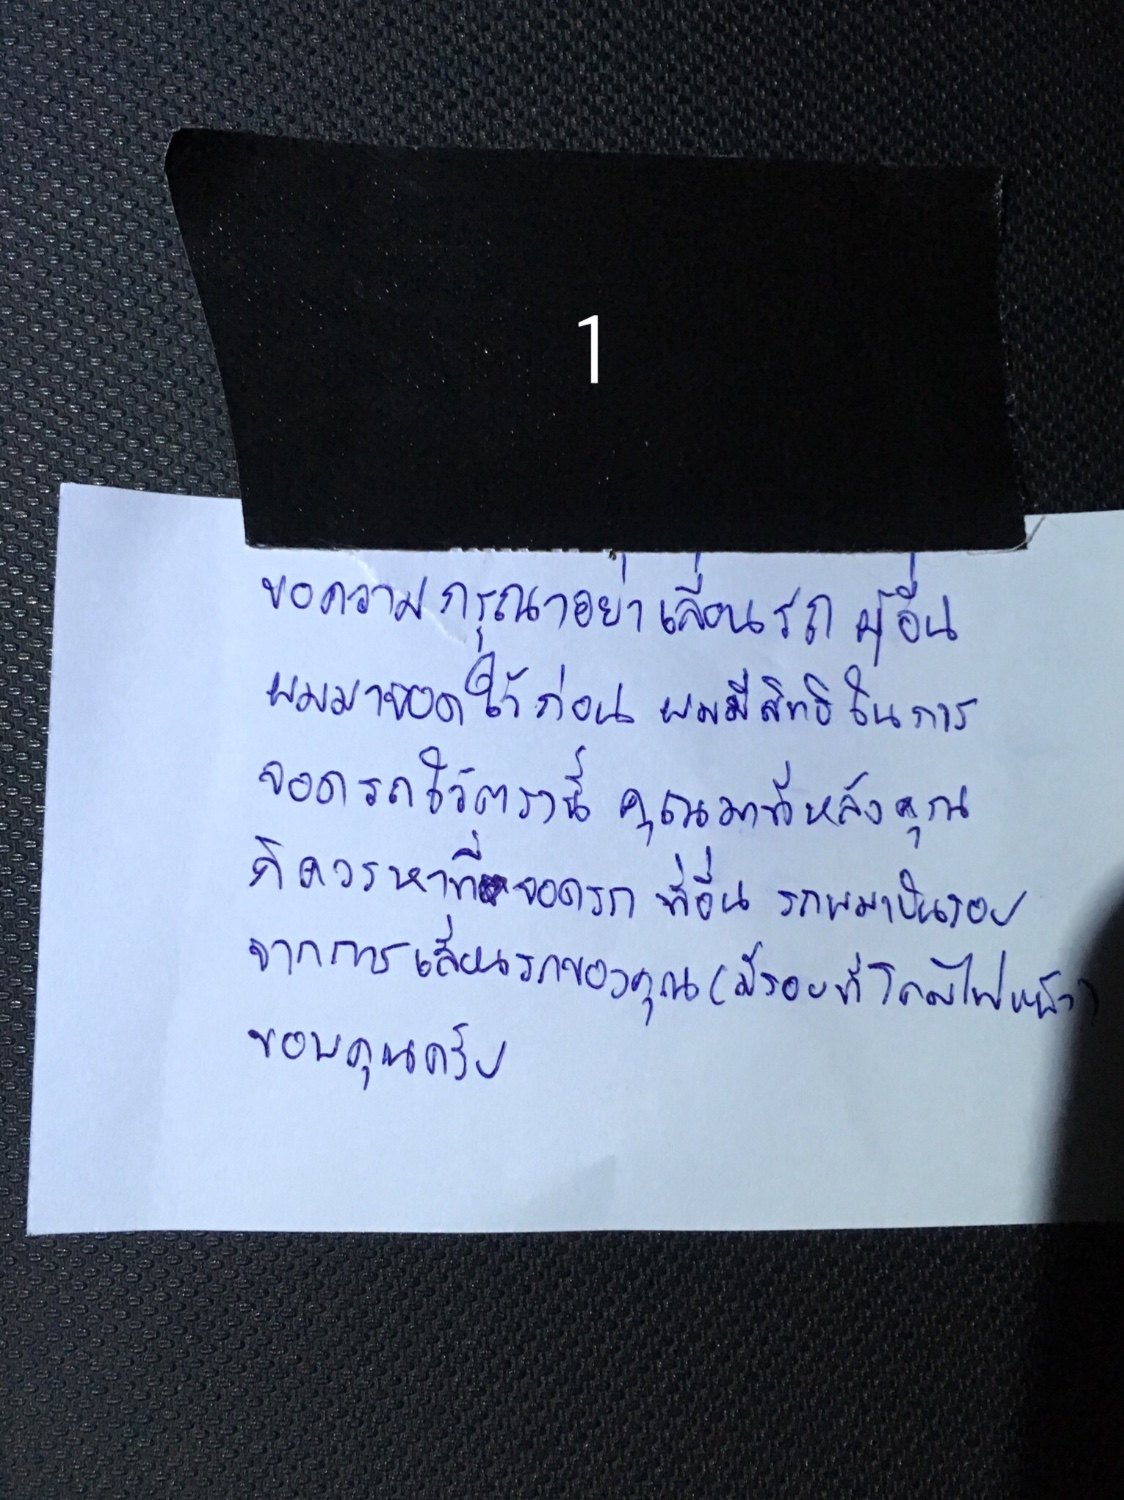 1
ขอความกรุณาอย่าเลื่อนรถผู้อื่น
ผมมาจอดไว้ก่อน ผมมีสิทธิในการ
จอดรถไว้ตรงนี้ คุณมาทีหลังคุณ
ก็ควรหาที่จอดรถ ที่อื่น รถผมเป็นรอย
จากการเลื่อนรถของคุณ (มีรอยที่โคมไฟหน้า)
ขอบคุณครับ